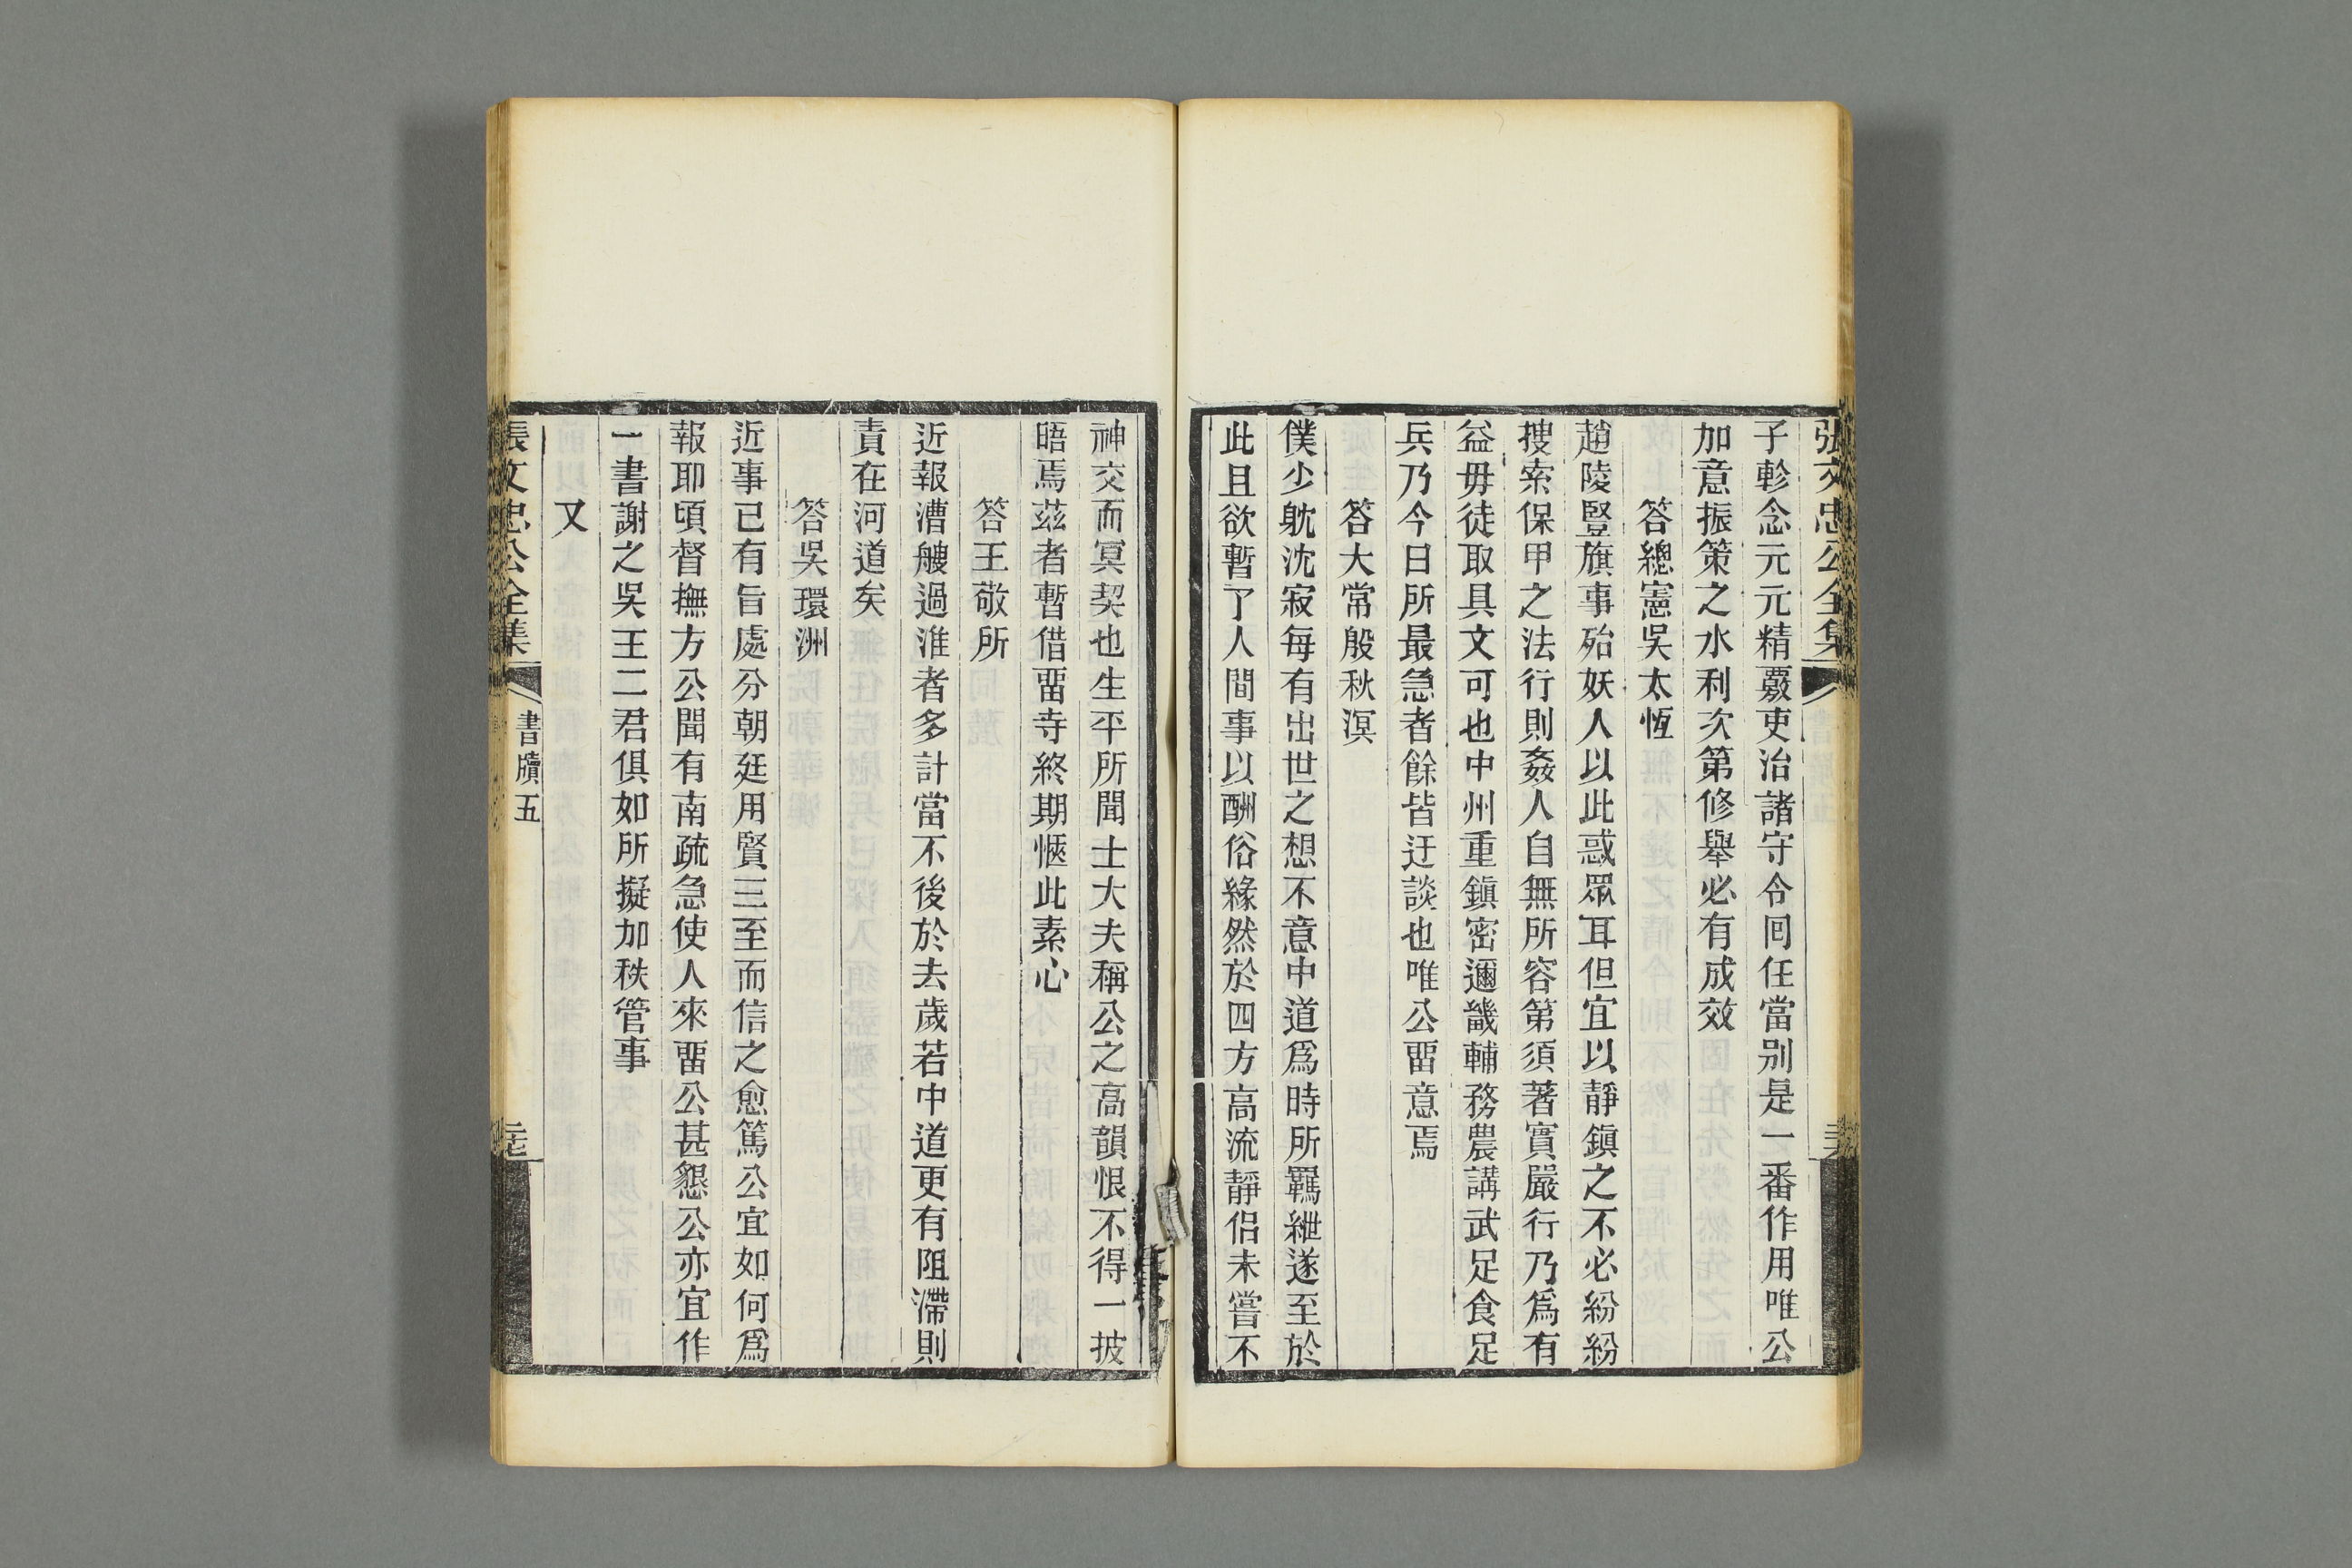 張文忠公全集
子軫念元元精覈吏治諸守令囘任當別是一番作用唯公
加意振策之水利次第修舉必有成效
答總憲吳太恆
趙陵豎旗事殆妖人以此惑眾耳但宜以靜鎭之不必紛紛
搜索保甲之法行則姦人自無所容第須著實嚴行乃爲有
益毋徒取具文可也中州重鎭密邇畿輔務農講武足食足
兵乃今日所最急者餘皆迂談也唯公畱意焉
答大常殷秋溟
僕少躭沈寂每有出世之想不意中道爲時所羈紲遂至於
此且欲暫了人間事以酬俗緣然於四方高流靜侶未嘗不
神交而冥契也生平所聞士大夫稱公之高韻恨不得一披
晤焉茲者暫借畱寺終期愜此素心
答王敬所
近報漕艘過淮者多計當不後於去歲若中道更有阻滯則
責在河道矣
答吳環洲
近事已有旨處分朝廷用賢三至而信之愈篤公宜如何爲
報耶頃督撫方公聞有南疏急使人來畱公甚懇公亦宜作
一書謝之吳王二君俱如所擬加秩管事
又
張文忠公全集
書牘五